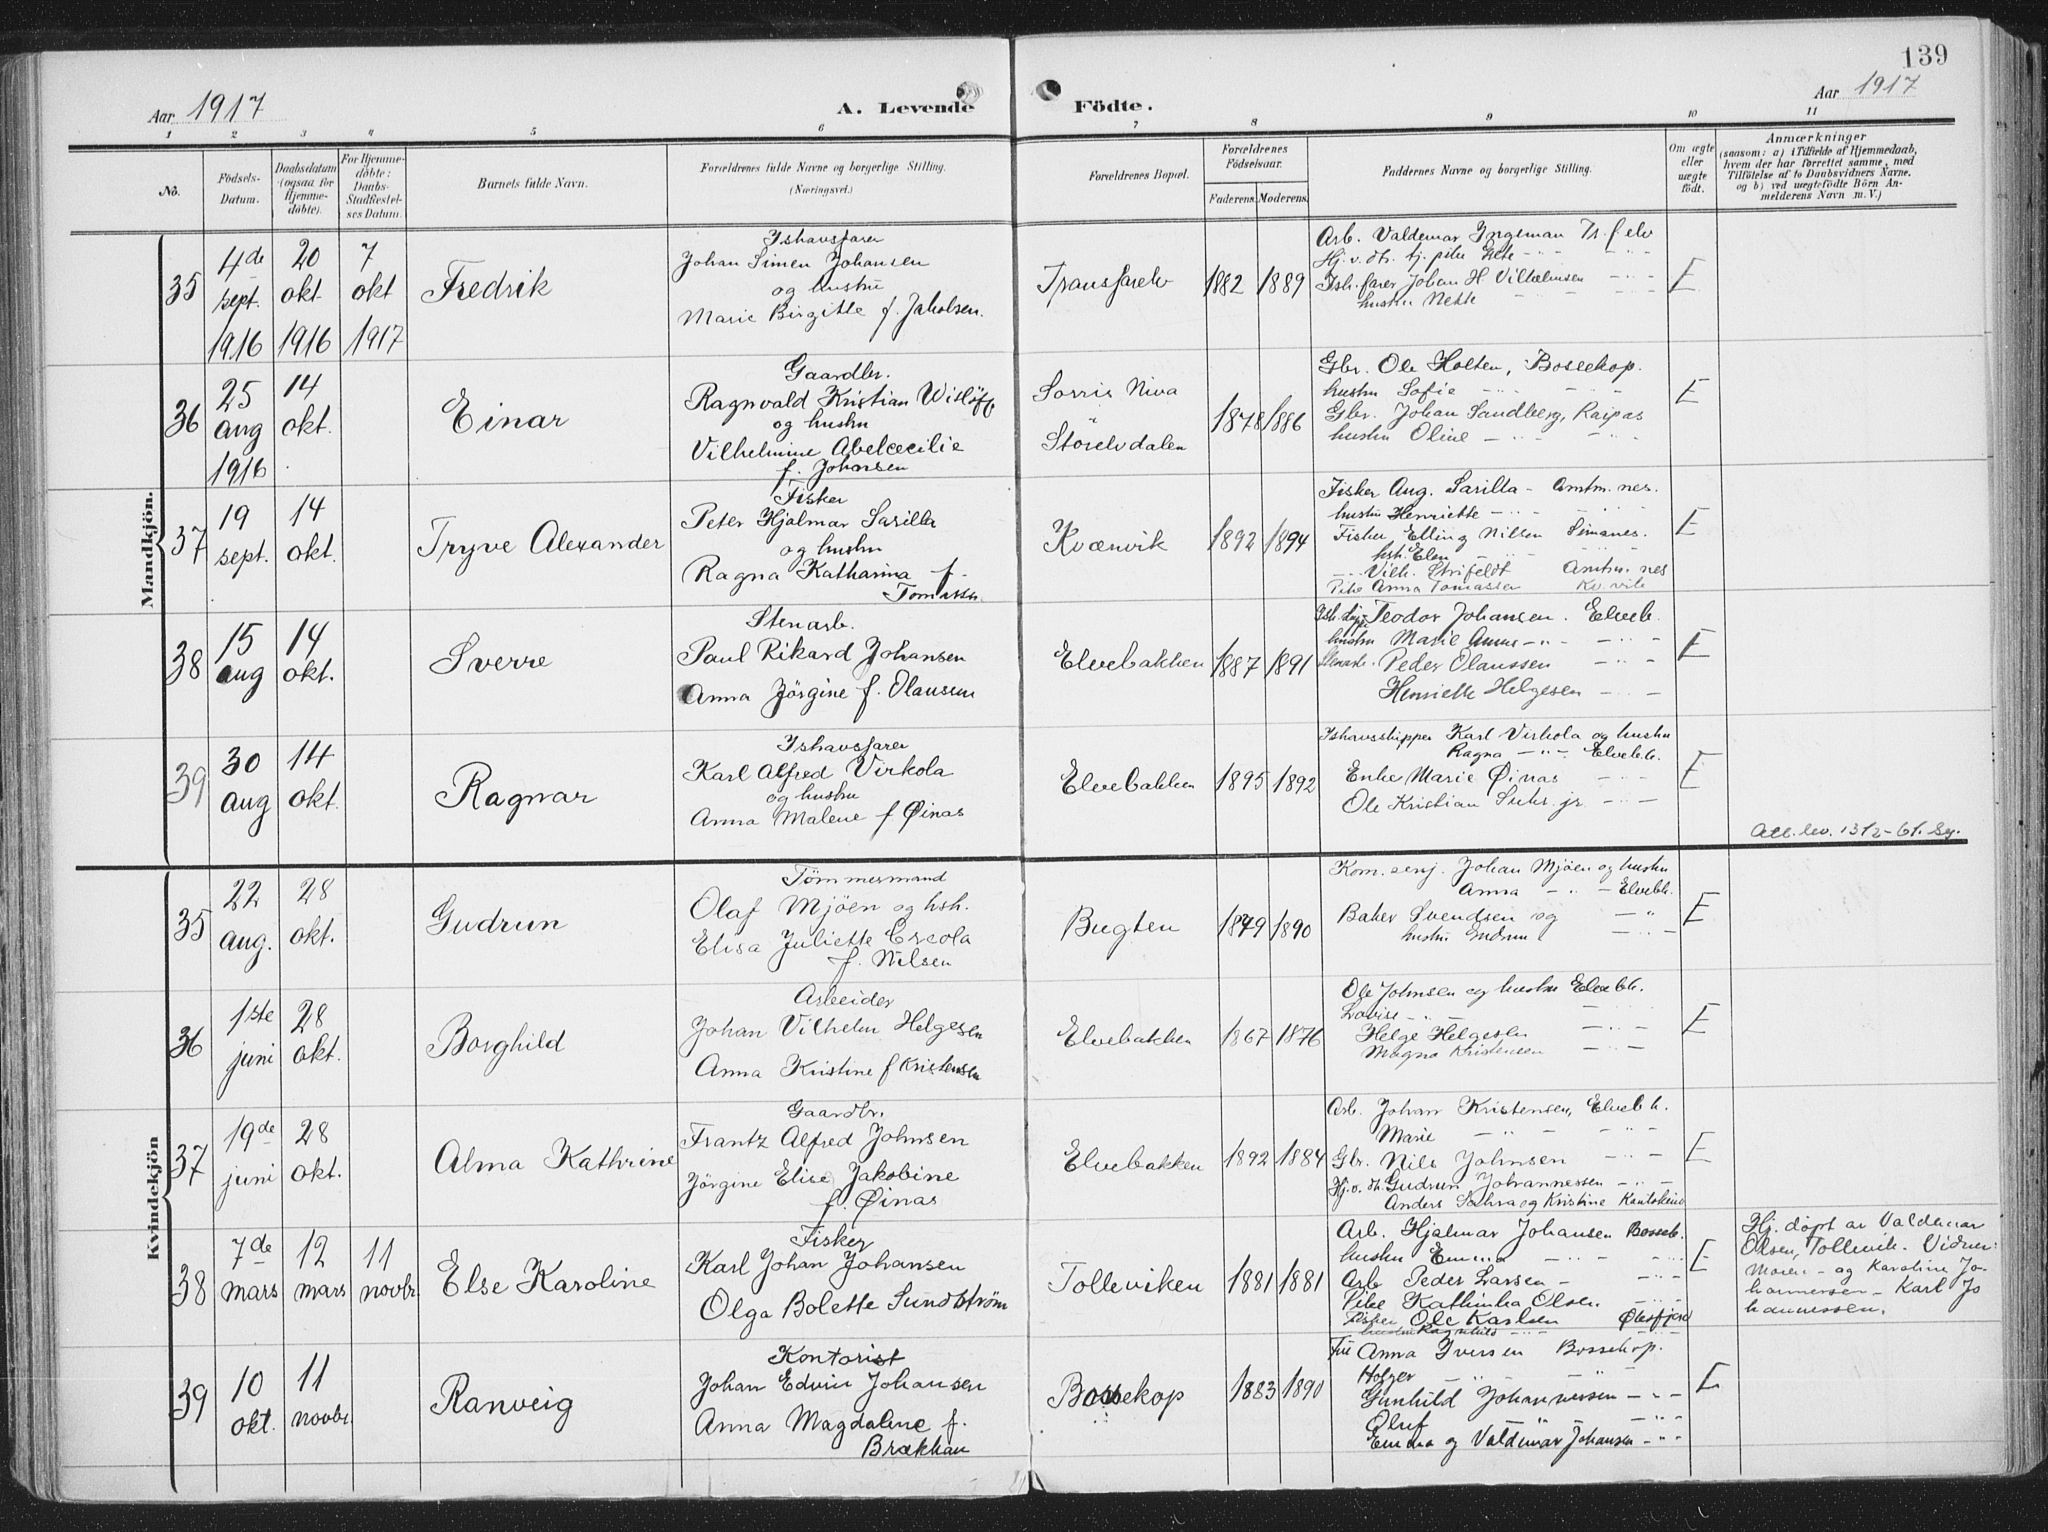 139
Aar 1917
A. Levende Födte.
Aar 1917
1 2 3 4 5 6 7 8 9 10 11
Nô.
Födsels-
Datum.
Daabsdatum
(ogsaa for
Hjemme-
døbte).
For Hjemme-
døbte:
Daabs-
Stadfæstel-
ses Datum.
Barnets fulde Navn.
Forældrenes fulde Navne og borgerlige Stilling.
(Næringsvei.)
Forældrenes Bopæl.
Forældrenes
Födselsaar.
Faderens.
Moderens.
Faddernes Navne og borgerlige Stilling.
Om ægte
eller
uægte
födt.
Anmærkninger
(saasom: a) i Tilfælde af Hjemmedaab,
hvem der har forrettet samme, med
Tilföielse af to Daabsvidners Navne.
og b) ved uægtefödte Börn An-
melderens Navn m. V.)
Mandkjön.
35
4de
sept.
1916
20
okt
1916
7
okt
1917
Fredrik
Ishavsfarer
Johan Simen Johansen
og hustru
Marie Birgitte f. Jakobsen.
Transfarelv
1882
1889
Arb. Valdemar Ingeman Tr.f.elv
Ish.farer Johan H Vilhelmsen
hustru Nekke
E
36
25
aug
1916
14
okt.
Einar
Gaardbr.
Ragnvald Kristian Wisløff
og hustru
Vilhelmine Abelcecilie
f. Johansen
Sorris Niva
Störelvdalen
1878
1886
Gbr. Ole Holten, Bossekop.
hustru Sofie
Gbr. Johan Sandberg, Raipas
hustru Oline
E
37
19
sept.
14
okt.
Tryve Alexander
Fisker
Peter Hjalmar Sarilla
og hustru
Ragna Katharina f.
Tomassen
Kvænvik
1892
1894
Fisker Aug. Sarilla - Amtm.nes.
hustru Henriette
Fisker Elling Nilsen Simanes.
hsh. Elen
Vilh. Strifeldt Amtm. nes
Pike Anna Tomassen Kv.vik
E
38
15
aug
14
okt.
Sverre
Stenarb.
Paul Rikard Johansen
Anna Jörgine f. Olausen
Elvebakken
1887
1891
Teodor Johansen. Elvebk.
hustru Marie
Peder Olaussen
Henriette Helgesen
E
39
30
aug
14
okt.
Ragnar
Ishavsfarer
Karl Alfred Virkola
og hustru
Anna Malene f Øinas
Elvebakken
1895
1892
Ishavsskipper Karl Virkola og hustru
Ragna Elvebk.
Enke Marie Øinas
Ole Kristian Suhr. jr.
E
Att. lev. 13/2-61. Sg.
Kvindekjön
35
22
aug.
28
okt.
Gudrun
Tömmermand
Olaf Mjöen og hsh.
Elisa Juliette Ercola
f. Nilsen
Bugten
1879
1890
Kom.serj. Johan Mjöen og hustru
Anna Elvebk.
Baker Svendsen og
hustru Gudrun
E
36
1ste
juni
28
okt.
Borghild
Arbeider
Johan Vilhelm Helgesen
Anna Kristine f Kristensen
Elvebakken
1867
1876
Ole Johnsen og hustru Elvebk.
Lovise
Helge Helgesen
Magna Kristensen
E
37
19de
juni
28
okt.
Alma Kathrine
Gaardbr.
Frantz Alfred Johnsen
Jörgine Elise Jakobine
f. Øinas
Elvebakken
1892
1884
Arb. Johan Kristensen, Elvebk.
Marie
Gbr. Nils Johnsen
Hj.v. dt. Gudrun Johannessen
Anders Sahra og Kristine Kautokeino
E
38
7de
mars
12
mars
11
novbr.
Else Karoline
Fisker
Karl Johan Johansen
Olga Bolette Sundström
Tolleviken
1881
1881
Arb. Hjalmar Johansen Bossek.
hustru Emma
Arb Peder Larsen
Pike Kathinka Olsen
Fisker Ole Karlsen Øksfjord
hustru Ragnhild
E
Hj. døpt av Valdemar
Olsen, Tollevik. Vidner:
Maren - og Karoline Jo-
hannessen - Karl Jo
hannessen.
39
10
okt.
11
novbr.
Ranveig
Kontorist
Johan Edvin Johansen
Anna Magdalene f.
Brækhan
Bossekop
1883
1890
Fru Anna Iversen Bossekop.
Holger
Gunhild Johannessen
Oluf
Emma og Valdemar Johansen
E